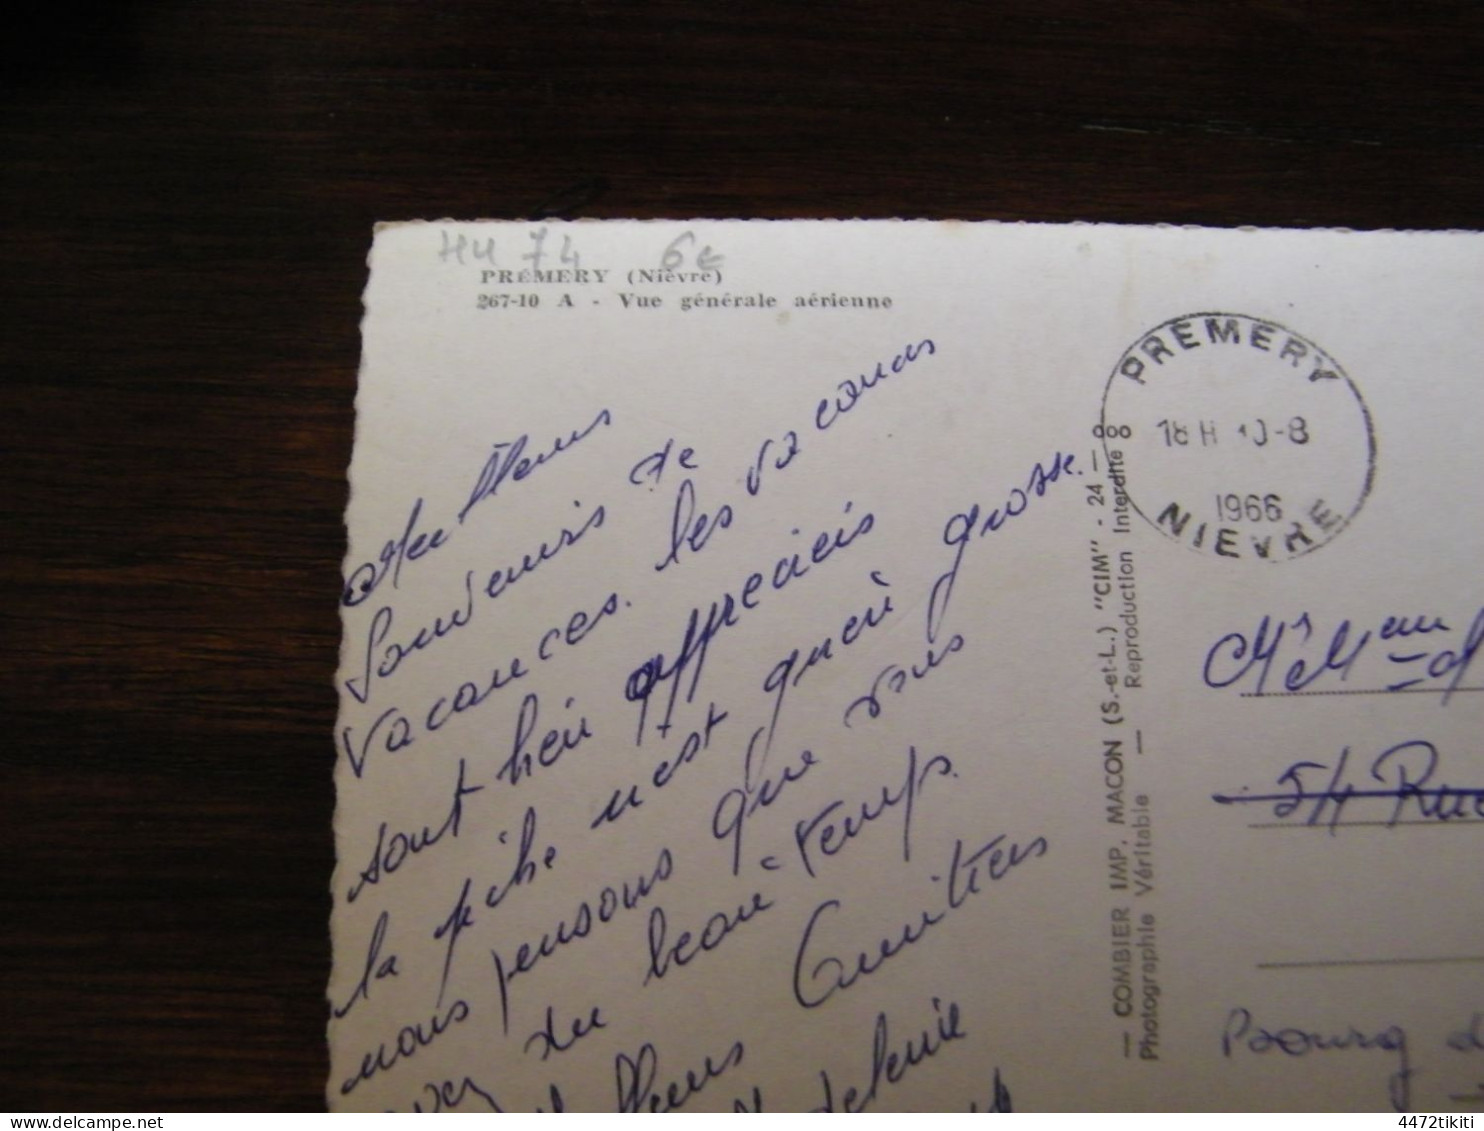 HU 74 6€
PRÉMERY (Nièvre)
267-10 A - Vue générale aérienne
PREMERY
18H 10-8
1966
NIEVRE
Meilleurs
Souvenirs de
Vacances. les vacances
sont bien appréciés
la pêche n'est guère grosse.
nous pensons que vous
avez du beau temps.
Amitiés
— COMBIER IMP. MACON (S.-et-L.) "CIM" - 24 —
Photographie Véritable — Reproduction Interdite
Mr Mme
54 Rue
Bourg
delcampe.net
4472tikiti